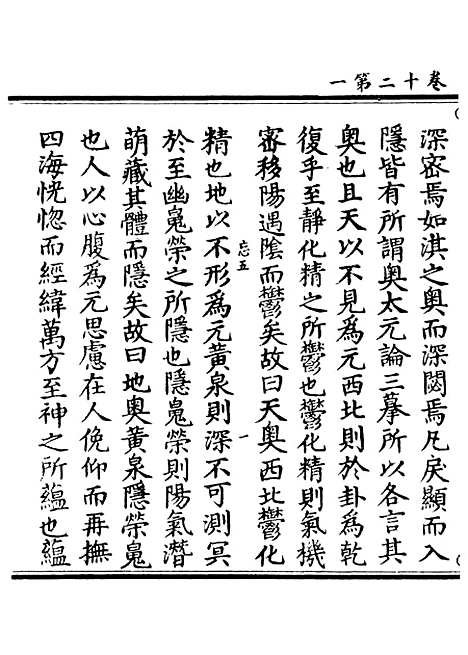 卷十二第一
深密焉如淇之奧而深閟焉凡戾顯而入
隱皆有所謂奧太元論三摹所以各言其
奧也且天以不見為元西北則於卦為乾
復乎至靜化精之所鬱也鬱化精則氣機
密移陽遇陰而鬱矣故曰天奧西北鬱化
忘五 一
精也地以不形為元黃泉則深不可測冥
於至幽㒱榮之所隱也隱㒱榮則陽氣潛
萌藏其體而隱矣故曰地奧黃泉隱榮㒱
也人以心腹為元思慮在人俛仰而再撫
四海恍惚而經緯萬方至神之所蘊也蘊